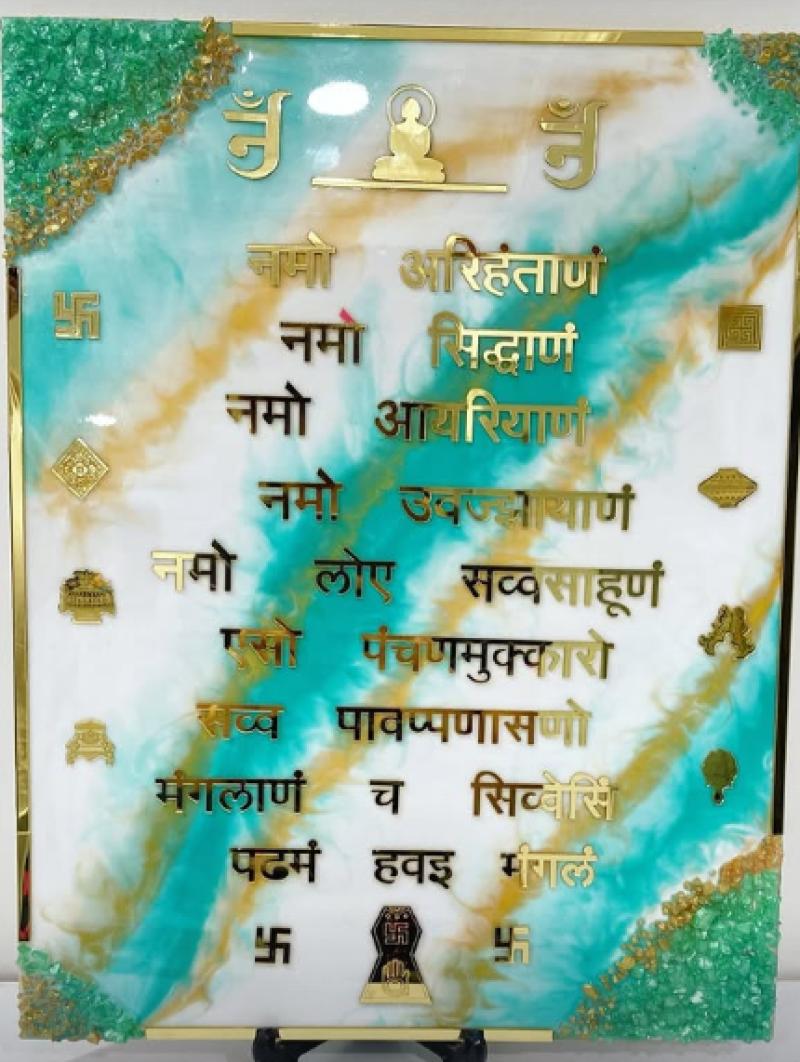 ॐ ॐ
नमो अरिहंताणं
नमो सिद्धाणं
नमो आयरियाणं
नमो उवज्झायाणं
नमो लोए सव्वसाहूणं
एसो पंचणमुक्कारो
सव्व पावप्पणासणो
मंगलाणं च सिव्वेसिं
पढमं हवइ मंगलं